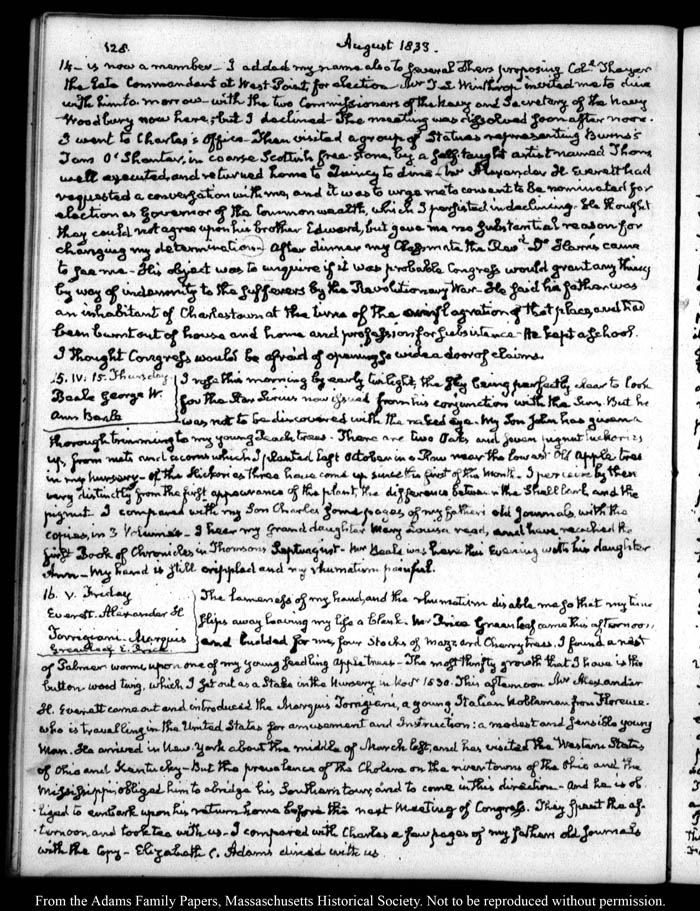 128.
August 1833.
14 - is now a member - I added my name also to several others proposing Coll. Thayer
the late Commandant at West Point, for election. Mr T. L. Winthrop invited me to dine
with him to morrow with the two Commissioners of the Navy and Secretary of the Navy
Woodbury now here; but I declined - The meeting was dissolved soon after noon.
I went to Charles's Office - Then visited a group of Statues representing Burns's
Tam O'Shanter, in coarse Scottish free-stone, by a self-taught artist named Thom
well executed, and returned home to Quincy to dine - Mr Alexander H. Everett had
requested a conversation with me, and it was to urge me to consent to be nominated for
election as Governor of the Commonwealth, which I persisted in declining. He thought
they could not agree upon his brother Edward, but gave me no substantial reason for
changing my determination - After dinner my Classmate the Revd. Dr Harris came
to see me - His object was to enquire if it was probable Congress would grant any thing
by way of indemnity to the sufferers by the Revolutionary War - He said his father was
an inhabitant of Charlestown at the time of the conflagration of that place, and had
been burnt out of house and home and profession for subsistence - He kept a School.
I thought Congress would be afraid of opening so wide a door of claims.
15. IV: 15. Thursday
Beale George W.
Ann Beale
I rose this morning by early twilight, the sky being perfectly clear to look
for the Star Sirius now issued from his conjunction with the Sun. But he
was not to be discovered with the naked eye. My Son John has given a
thorough trimming to my young Peach trees - There are two Oaks and seven pignut hickories
up, from nuts and acorns which I planted last October in a Row near the lowest old apple tree
in my nursery - of the Hickories three have come up since the first of this Month. I perceive by them
very distinctly from the first appearance of the plant, the difference between the Shellbark and the
pignut. I compared with my Son Charles some pages of my father's old journals, with the
copies, in 3 Volumes - I hear my Granddaughter Mary Louisa read, and have reached the
first Book of Chronicles in Thomson's Septuagint - Mr Beale was here this Evening with his daughter
Ann - My hand is still crippled and my rhumatism painful.
16. V. Friday
Everett. Alexander H
Torrigiani. Marquis
Greenleaf E. Price.
The lameness of my hand, and the rhumatism disable me so that my time
slips away leaving my life a blank. Mr Price Greenleaf came this afternoon,
and budded for me, four Stocks of Mazz and Cherry trees. I found a nest
of Palmer worms upon one of my young seedling apple trees - The most thrifty growth that I have is the
button wood twig, which I set out as a Stake in the Nursery in Novr 1830. This afternoon Mr Alexander
H. Everett came out and introduced the Marquis Torrigiani, a young Italian Nobleman from Florence.
who is travelling in the United States for amusement and Instruction: a modest and sensible young
man. He arrived in New York about the middle of March last, and has visited the Western States
of Ohio and Kentucky - But the prevalence of the Cholera on the river towns of the Ohio and the
Mississippi, obliged him to abridge his Southern tour, and to come in this direction - And he is ob-
liged to embark upon his return home before the next Meeting of Congress. They spent the af-
ternoon, and took tea with us - I compared with Charles a few pages of my father's old Journals
with the Copy - Elizabeth C. Adams dined with us
From the Adams Family Papers, Massachusetts Historical Society. Not to be reproduced without permission.